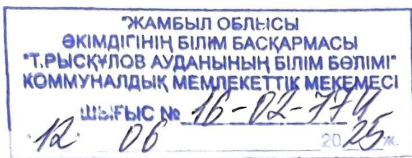 "ЖАМБЫЛ ОБЛЫСЫ
ӘКІМДІГІНІҢ БІЛІМ БАСҚАРМАСЫ
"Т.РЫСҚҰЛОВ АУДАНЫНЫҢ БІЛІМ БӨЛІМІ"
КОММУНАЛДЫҚ МЕМЛЕКЕТТІК МЕКЕМЕСІ
ШЫҒЫС № 16-02-774
12 06 2025 ж.